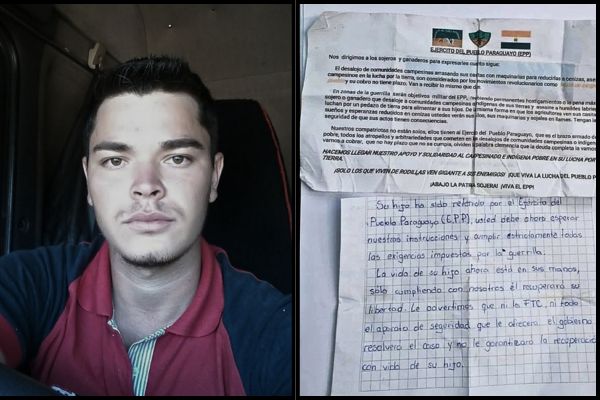 EJERCITO DEL PUEBLO PARAGUAYO (EPP)
Nos dirigimos a los sojeros y ganaderos para expresarles cuanto sigue:
El desalojo de comunidades campesinas arrasando sus casitas con maquinarias para reducirlas a cenizas,
campesinos en la lucha por la tierra, son considerados por los movimientos revolucionarios como
pueblo y su cobro no tiene plazo. Van a recibir lo mismo que dan
En zonas de la guerrilla serán objetivos militar del EPP,
sojero o ganadero que desaloje a comunidades campesinas indígenas de sus tierras y asesine a humildes
luchan por un pedazo de tierra para alimentar a sus hijos. De la misma forma en que los agricultores ven sus casitas
sueños y esperanzas reducidos en cenizas ustedes verán sus silos, sus maquinarias y sojales en llamas. Tengan la
seguridad de que sus actos tienen consecuencias.
Nuestros compatriotas no están solos, ellos tienen al Ejercito del Pueblo Paraguayo, que es el brazo armado de
pobre, todos los atropellos y arbitrariedades que cometen en desalojos de comunidades campesinas o indígenas
vamos a cobrar, que no hay plazo que no se cumpla, olviden palabra clemencia que la deuda completa la vamos
HACEMOS LLEGAR NUESTRO APOYO Y SOLIDARIDAD AL CAMPESINADO E INDÍGENA POBRE EN SU LUCHA POR
TIERRA.
¡SOLO LOS QUE VIVEN DE RODILLAS VEN GIGANTE A SUS ENEMIGOS! ¡QUE VIVA LA LUCHA DEL PUEBLO
¡ABAJO LA PATRIA SOJERA! ¡VIVA EL EPP!
Su hijo ha sido retenido por el Ejército del
Pueblo Paraguayo (E.P.P), usted debe ahora esperar
nuestras instrucciones y cumplir estrictamente todas
las exigencias impuestas por la guerrilla.
La vida de su hijo ahora está en sus manos,
solo cumpliendo con nosotros él recuperará su
libertad. Le advertimos que ni la FTC, ni todo
el aparato de seguridad que le ofrecerá el gobierno
resolverá el caso y no le garantizará la recuperación
con vida de su hijo.